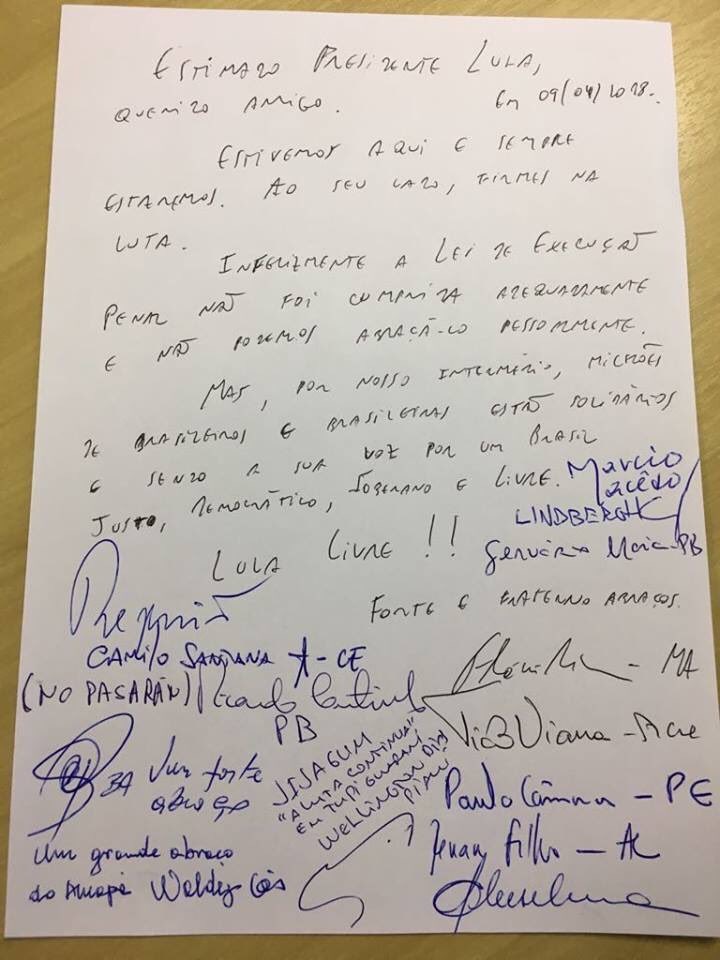 ESTIMADO PRESIDENTE LULA,
QUERIDO AMIGO. Em 09/04/2018.
ESTIVEMOS AQUI E SEMPRE
ESTAREMOS. AO SEU LADO, FIRMES NA
LUTA.
INFELIZMENTE A LEI DE EXECUÇÃO
PENAL NÃO FOI CUMPRIDA ADEQUADAMENTE
E NÃO PODEMOS ABRAÇÁ-LO PESSOALMENTE.
MAS, POR NOSSO INTERMÉDIO, MILHÕES
DE BRASILEIROS E BRASILEIRAS ESTÃO SOLIDÁRIOS
E SENDO A SUA VOZ POR UM BRASIL
JUSTO, DEMOCRÁTICO, SOBERANO E LIVRE.
Marcio
Macêdo
LINDBERGH
Gervásio Maia-PB
LULA LIVRE !!
FORTE E FRATERNO ABRAÇOS.
Requião
CAMILO SANTANA - CE
(NO PASARÁN) Ricardo Coutinho
PB
Flávio Dino - MA
Tião Viana - Acre
BA Um forte
abraço
JIJAGUM
"A LUTA CONTINUA"
EM TUPI GUARANI
WELLINGTON DIAS
PIAUI
Paulo Câmara - PE
Renan Filho - AL
Um grande abraço
do Amapá Waldez Góes